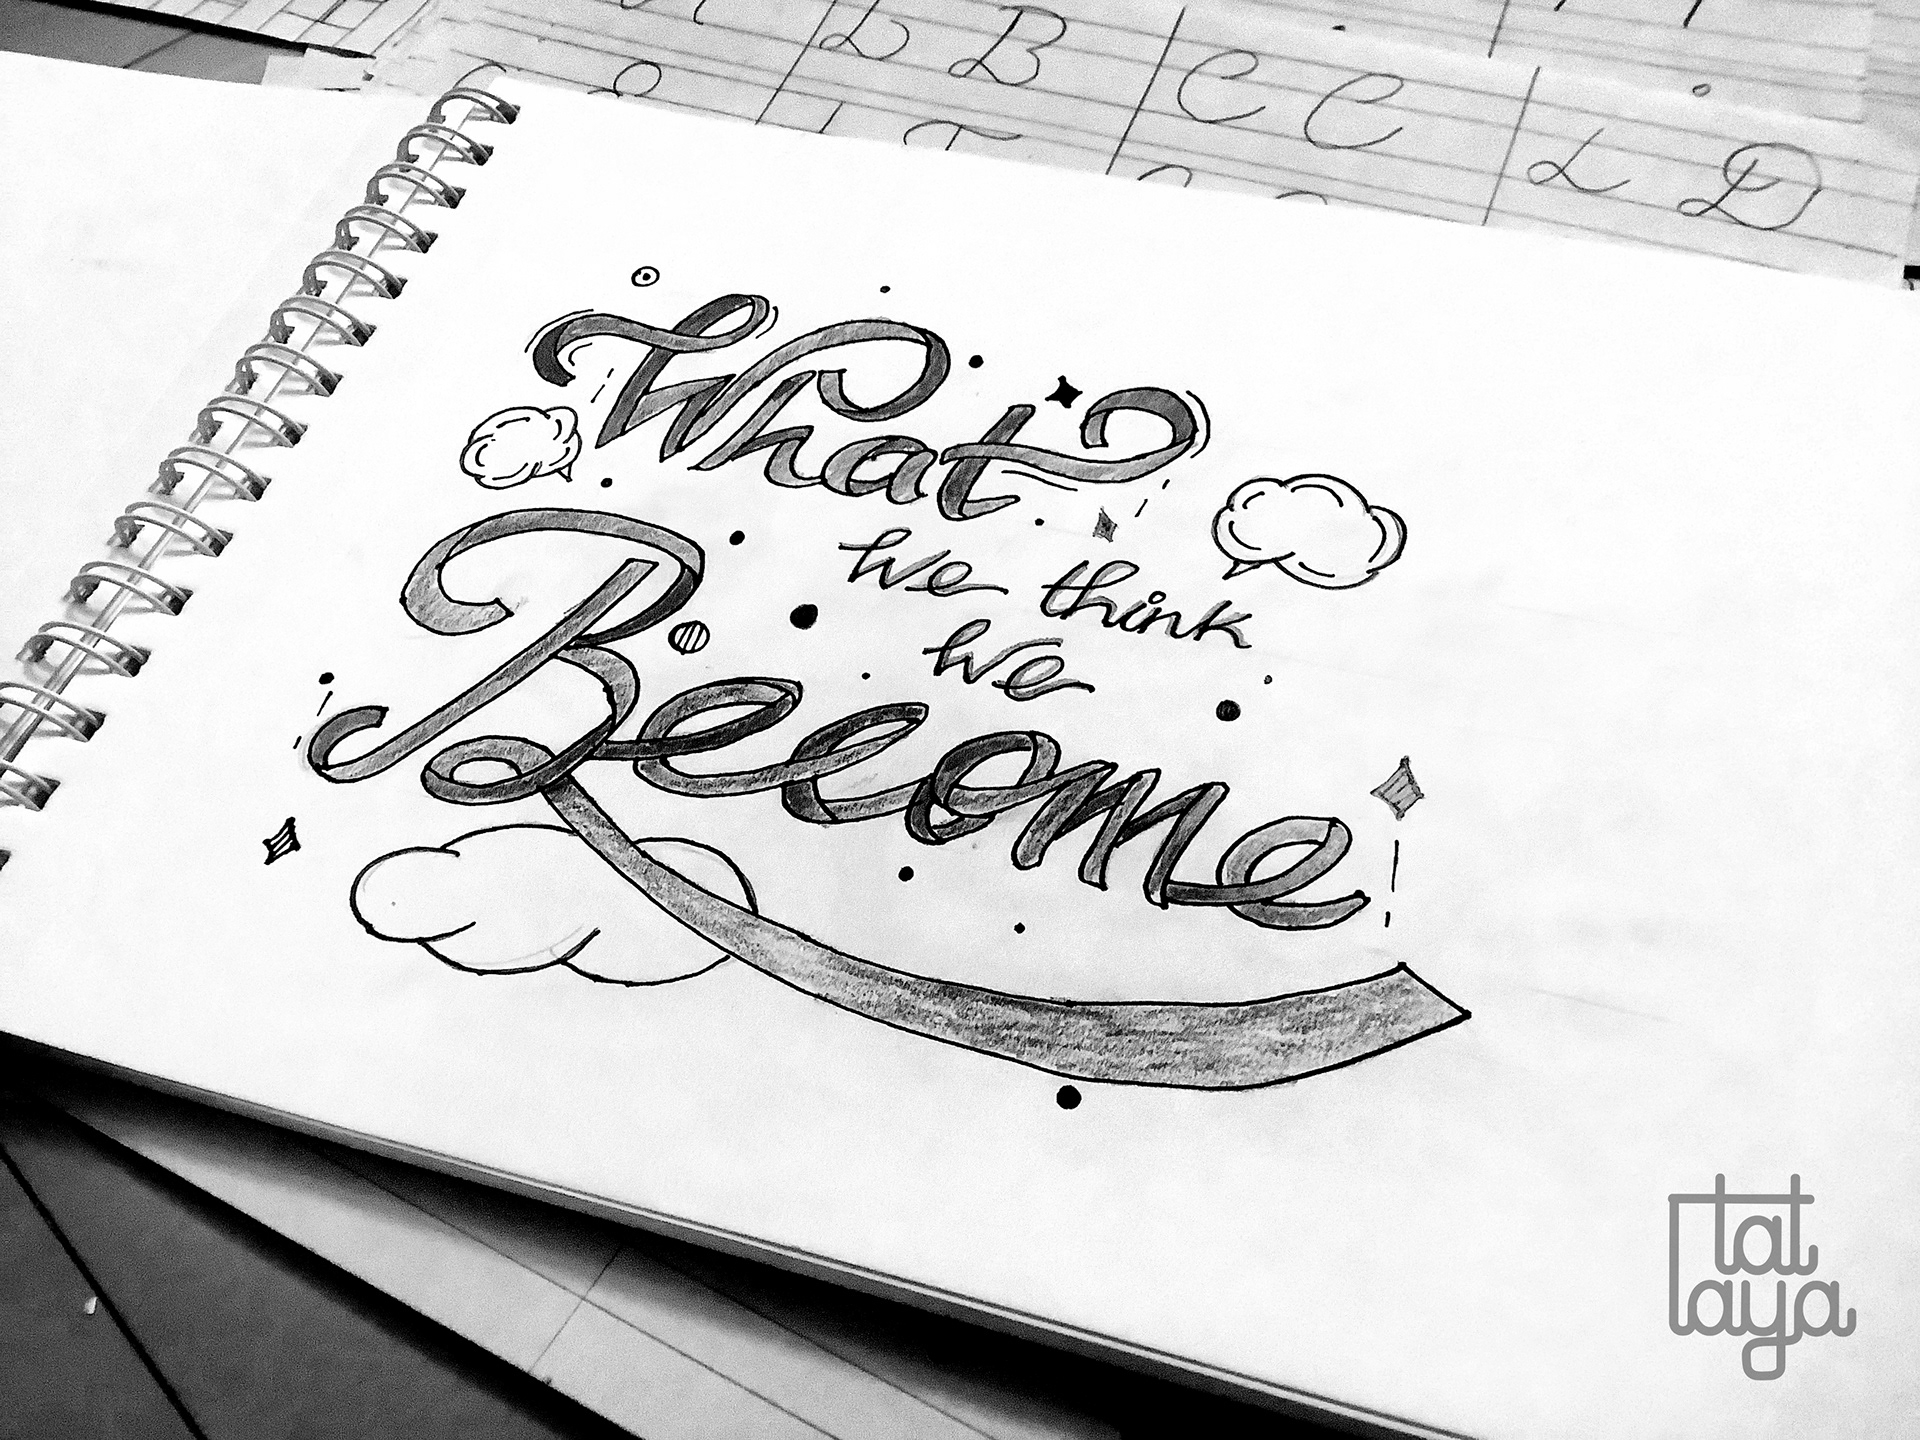 B
C C
D
What
We think
We
Become
tat
laya